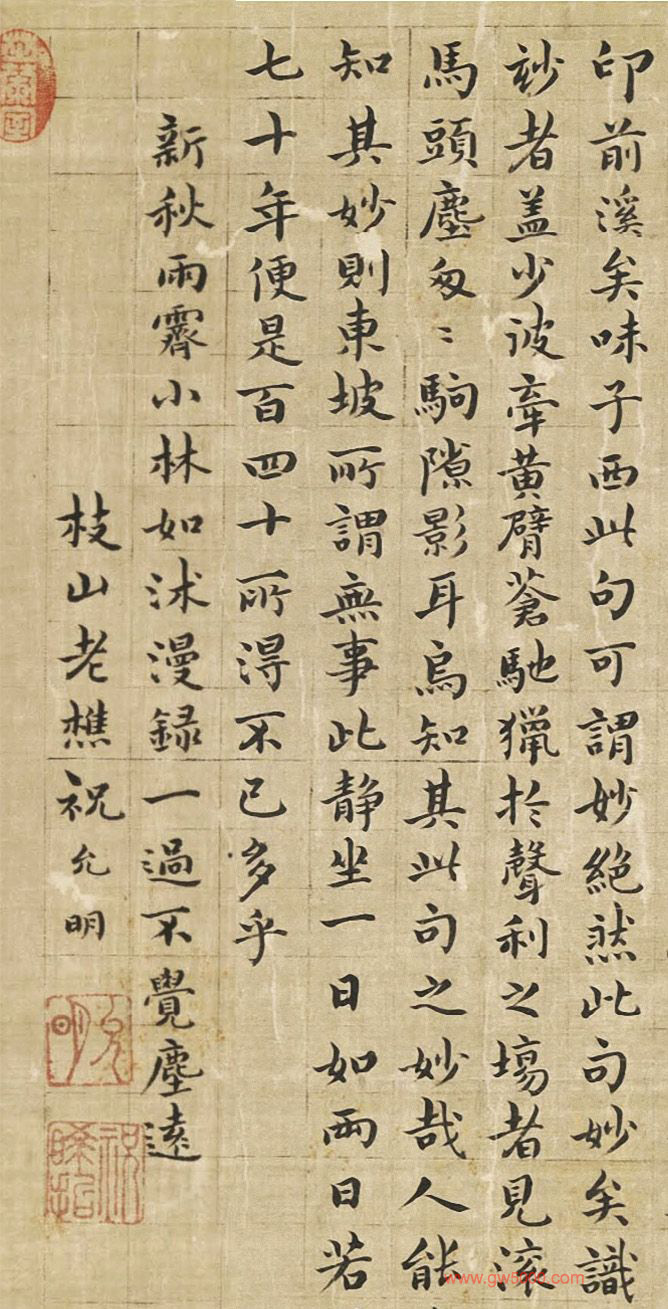 印前溪矣味子西此句可謂妙絕然此句妙矣識
玅者盖少彼牽黃臂蒼馳獵扵聲利之塲者見滾
馬頭塵匆〻駒隙影耳烏知其此句之妙哉人能
知其妙則東坡所謂無事此静坐一日如兩日若
七十年便是百四十所得不已多乎
新秋雨霽小林如沐漫録一過不覺塵遠
枝山老樵祝允明
允明